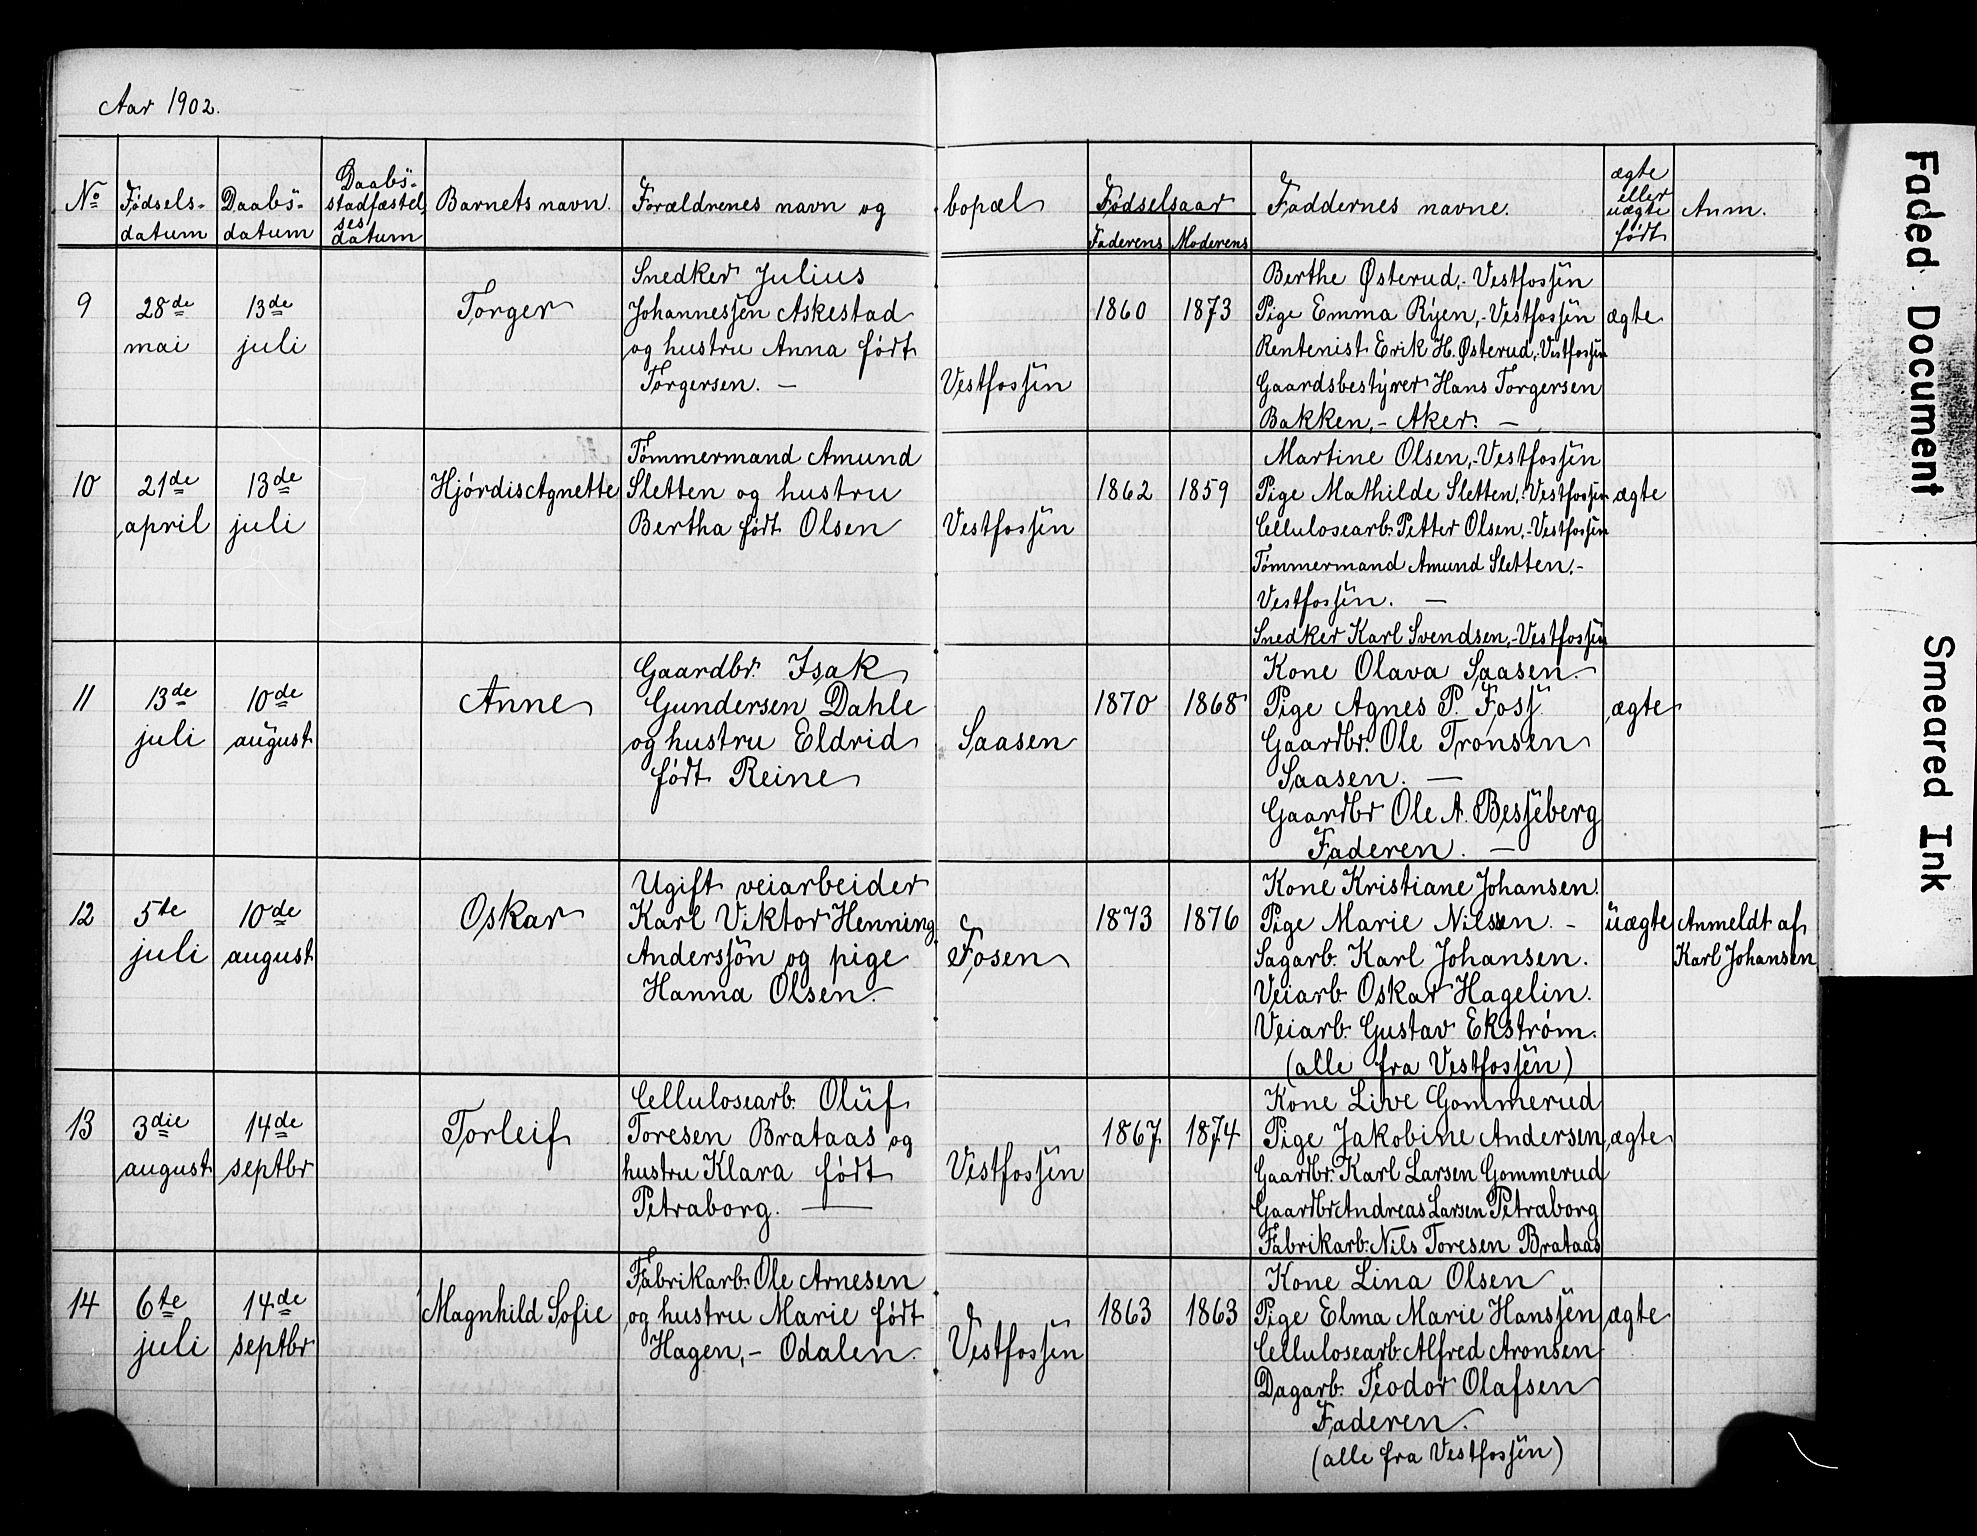 Aar 1902.
No Fødsels-datum Daabs-datum Daabs-stadfæstel,ses datum Barnets navn. Forældrenes navn og bopæl Fødselsaar Faderens Moderens Faddernes navne. ægte eller uægte født Anm.
9 28de Torger Snedker Julius Berthe Østerud,- Vestfossen
mai 13de juli Johannessen Askestad 1860 1873 Pige Emma Ryen,- Vestfossen ægte
og hustru Anna født Rentenist Erik H. Østerud,- Vestfossen
Torgersen. — Vestfossen Gaardsbestyrer Hans Torgersen
Bakken,- Aker. —
Tømmermand Amund Martine Olsen,- Vestfossen
10 21de 13de Hjørdis Agnette Sletten og hustru 1862 1859 Pige Mathilde Sletten,- Vestfossen ægte
april juli Bertha født Olsen Vestfossen Cellulosearb. Petter Olsen,- Vestfossen
Tømmermand Amund Sletten,-
Vestfossen. —
Snedker Karl Svendsen,- Vestfossen
Gaardbr. Isak Kone Olava Saasen.
11 13de 10de Anne Gundersen Dahle 1870 1868 Pige Agnes P. Foss ægte
juli august og hustru Eldrid Saasen Gaardbr. Ole Tronsen
født Reine Saasen. —
Gaardbr Ole A. Besseberg
Faderen. —
Ugift veiarbeider Kone Kristiane Johansen.
12 5te 10de Oskar Karl Viktor Henning 1873 1876 Pige Marie Nilsen. - uægte Anmeldt af
juli august Anderssøn og pige Fosen Sagarb. Karl Johansen. Karl Johansen
Hanna Olsen. Veiarb. Oskar Hagelin.
Veiarb. Gustav Ekstrøm.
(alle fra Vestfossen)
Cellulosearb. Oluf Kone Live Gommerud
13 3die 14de Torleif Toresen Brataas og 1867 1874 Pige Jakobine Andersen ægte
august septbr hustru Klara født Vestfossen Gaardbr. Karl Larsen Gommerud
Petraborg. — Gaardbr Andreas Larsen Petraborg
Fabrikarb. Nils Toresen Brataas
Fabrikarb. Ole Arnesen Kone Lina Olsen
14 6te 14de Magnhild Sofie og hustru Marie født 1863 1863 Pige Elma Marie Hanssen ægte
juli septbr Hagen,- Odalen. Vestfossen Cellulosearb. Alfred Aronsen
Dagarb. Teodor Olafsen
Faderen.
(alle fra Vestfossen)
Faded Document
Smeared Ink